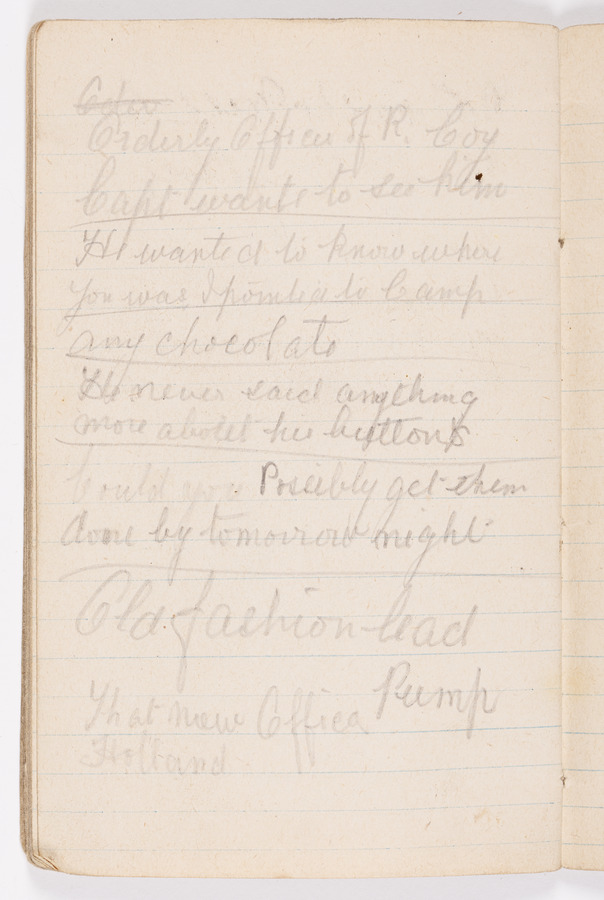 Orderly Officer of R. Coy
Capt wants to see him
He wanted to know where
you was, I pointed to Camp
any chocolate
He never said anything
more about his buttons
Could you Possibly get them
done by tomorrow night
Old fashion lead
Pump
That new Office
Holland